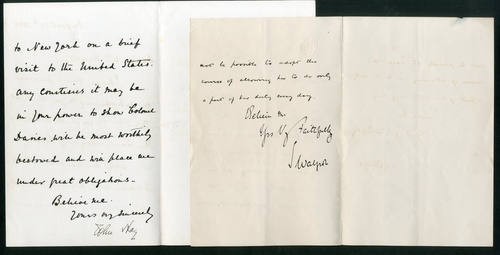 to New York on a brief
visit to the United States.
Any courtesies it may be
in your power to show Colonel
Davies will be most worthily
bestowed and will place me
under great obligations.
Believe me.
Yours very sincerely
John Hay
not be possible to adopt the
course of allowing her to do only
a part of her duty every day.
Believe me
Yrs Vy Faithfully